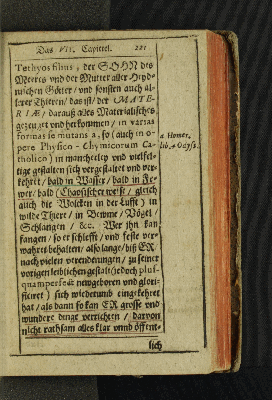 Das VII. Capittel. 221
Tethyos filius, der SOHN des
Meeres vnd der Mutter aller Heyd-
nischen Götter/ vnd sonsten auch al-
lerer Thieren/ das ist/ der MATE-
RIÆ/ darauß alles Materialisches
gezeuget vnd herkommen/ in varias
formas se mutans a, so (auch in o- a Homer.
pere Physico-Chymicorum Ca- lib. 4 Odyss.
tholico) in mancherley vnd vielfel-
tige gestalten sich vergestaltet vnd ver-
kehret/ bald in Wasser/ bald in Fe-
wer/ bald (Chaosischer weise/ gleich
auch die Wolcken in der Lufft) in
wilde Thiere/ in Bewme/ Vögel/
Schlangen/ &c. Wer ihn kan
fangen/ so er schlefft/ vnd feste ver-
wahret behalten/ also lange/ biß ER
nach vielen verenderungen/ zu seiner
vorigen leiblichen gestalt (jedoch plus-
quamperfectè newgeboren vnd glori-
ficiret) sich wiederumb eingekehret
hat/ als dann so kan ER grosse vnd
wundere dinge verrichten/ davon
nicht rathsam alles klar vnnd öffent-
lich